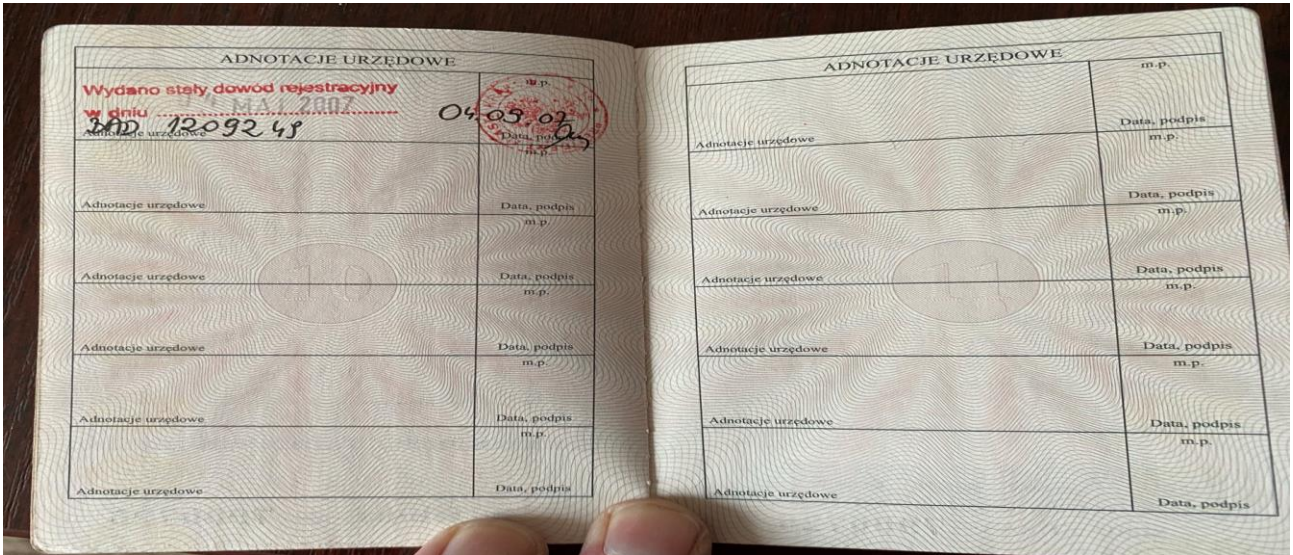 ADNOTACJE URZĘDOWE
Wydano stały dowód rejestracyjny
m.p.
w dniu MAJ 2007
BAD 1209249
04.09.07
Adnotacje urzędowe
Data, podpis
m.p.
Adnotacje urzędowe
Data, podpis
m.p.
Adnotacje urzędowe
Data, podpis
m.p.
Adnotacje urzędowe
Data, podpis
m.p.
Adnotacje urzędowe
Data, podpis
m.p.
Adnotacje urzędowe
Data, podpis
10
ADNOTACJE URZĘDOWE
m.p.
Adnotacje urzędowe
Data, podpis
m.p.
Adnotacje urzędowe
Data, podpis
m.p.
Adnotacje urzędowe
Data, podpis
m.p.
Adnotacje urzędowe
Data, podpis
m.p.
Adnotacje urzędowe
Data, podpis
m.p.
Adnotacje urzędowe
Data, podpis
11